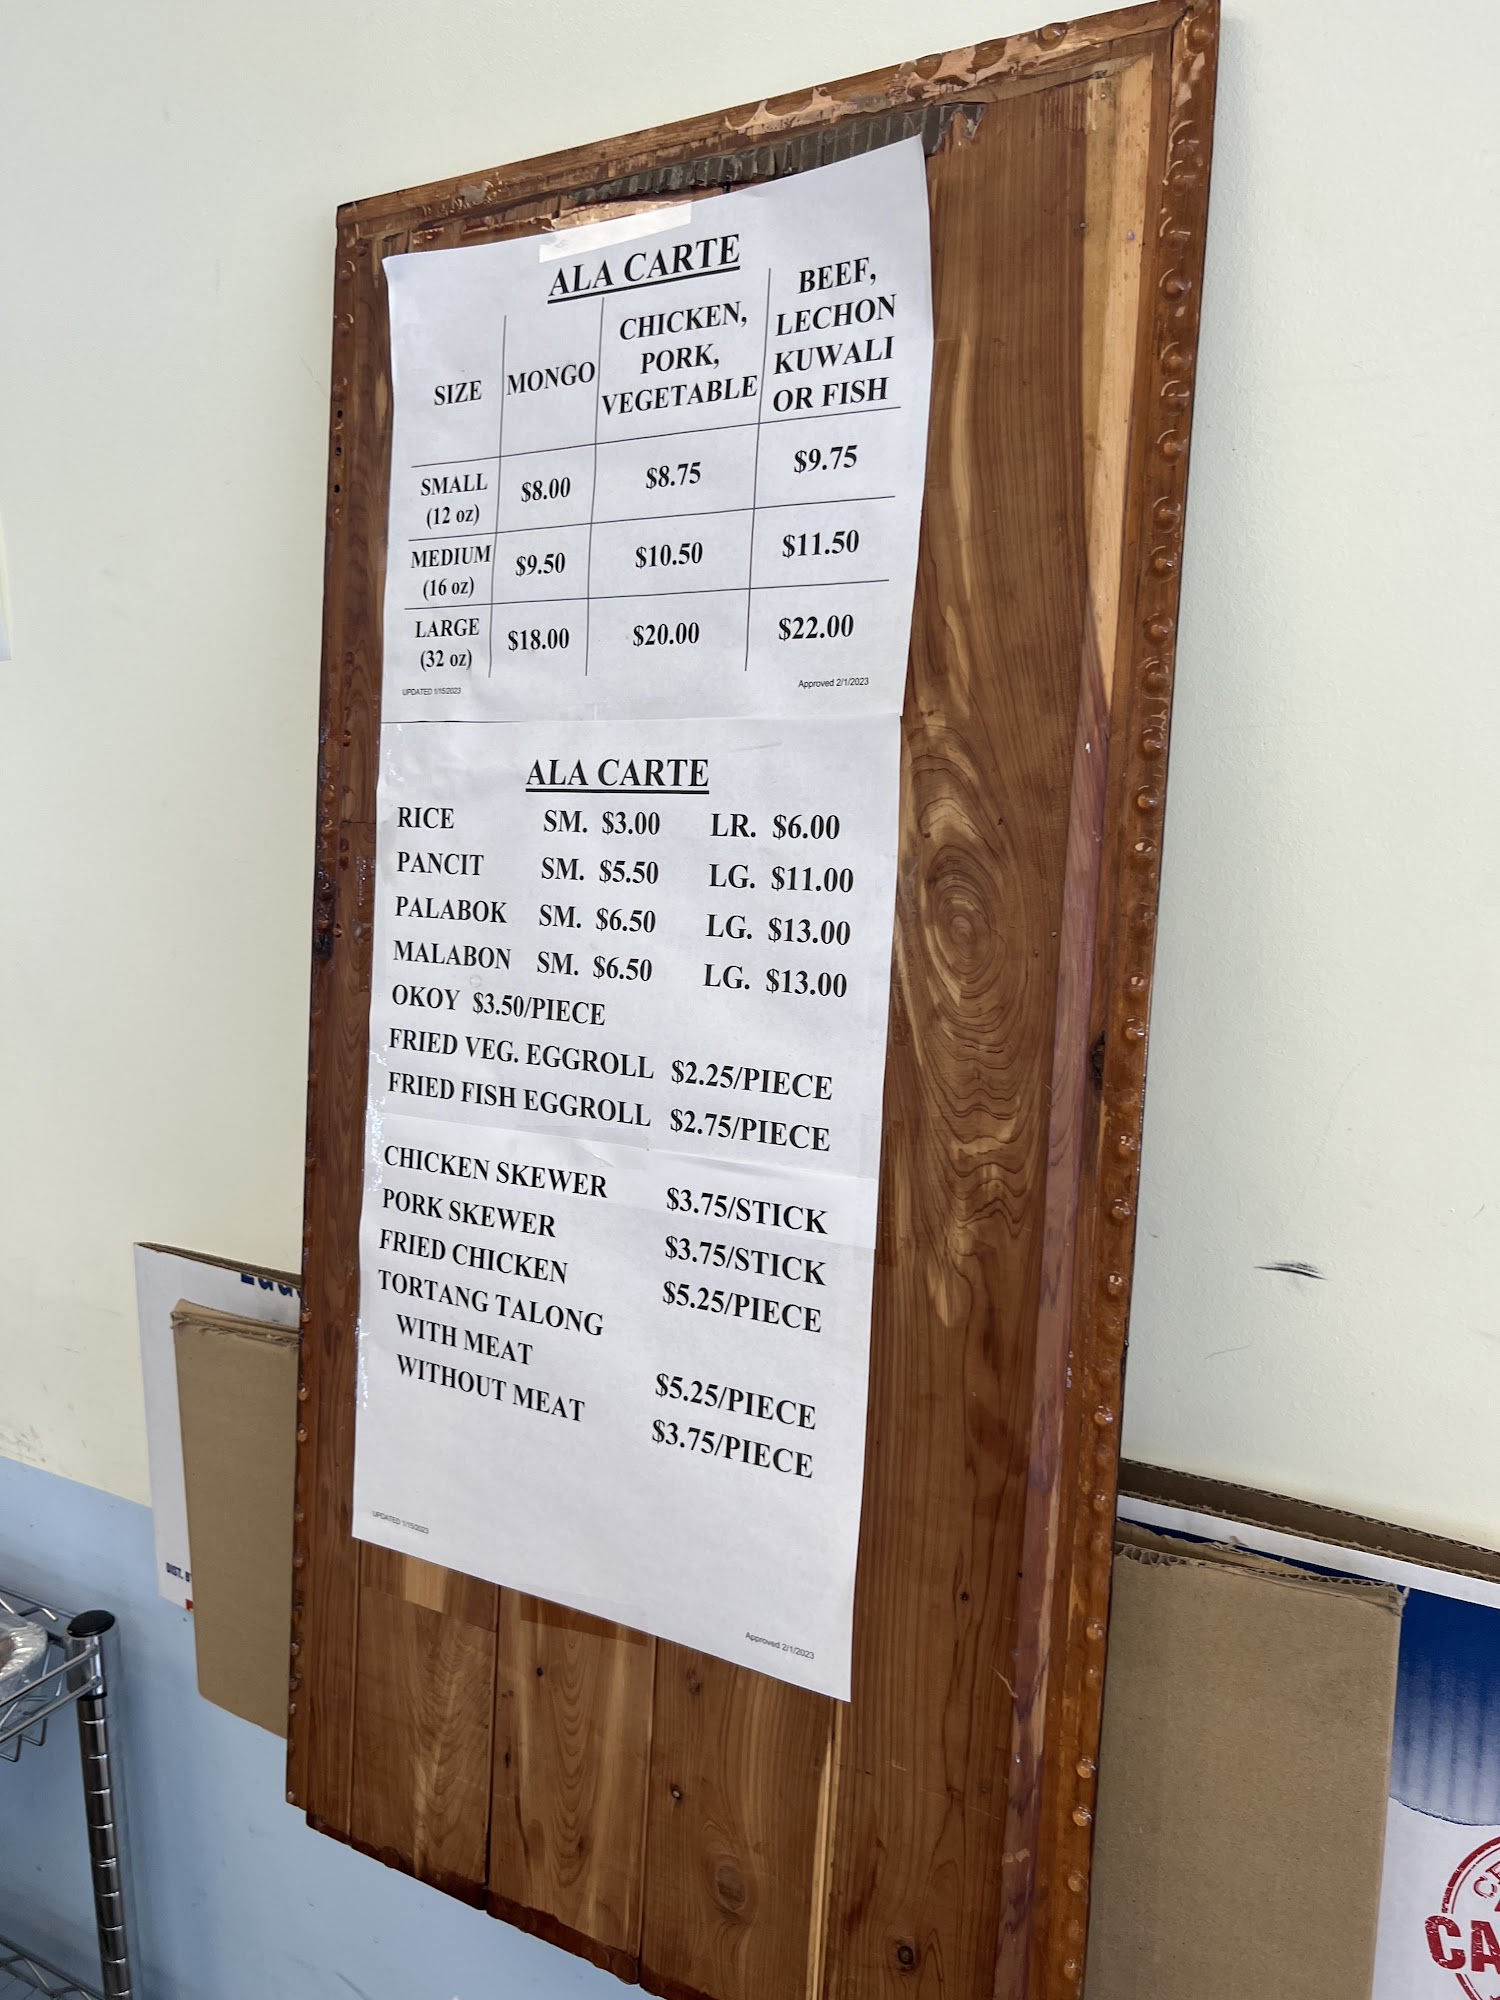 ALA CARTE
SIZE MONGO CHICKEN, PORK, VEGETABLE BEEF, LECHON KUWALI OR FISH
SMALL (12 oz) $8.00 $8.75 $9.75
MEDIUM (16 oz) $9.50 $10.50 $11.50
LARGE (32 oz) $18.00 $20.00 $22.00
UPDATED 1/15/2023 Approved 2/1/2023
ALA CARTE
RICE SM. $3.00 LR. $6.00
PANCIT SM. $5.50 LG. $11.00
PALABOK SM. $6.50 LG. $13.00
MALABON SM. $6.50 LG. $13.00
OKOY $3.50/PIECE
FRIED VEG. EGGROLL $2.25/PIECE
FRIED FISH EGGROLL $2.75/PIECE
CHICKEN SKEWER $3.75/STICK
PORK SKEWER $3.75/STICK
FRIED CHICKEN $5.25/PIECE
TORTANG TALONG
WITH MEAT $5.25/PIECE
WITHOUT MEAT $3.75/PIECE
UPDATED 1/15/2023 Approved 2/1/2023
DIST. B
CA